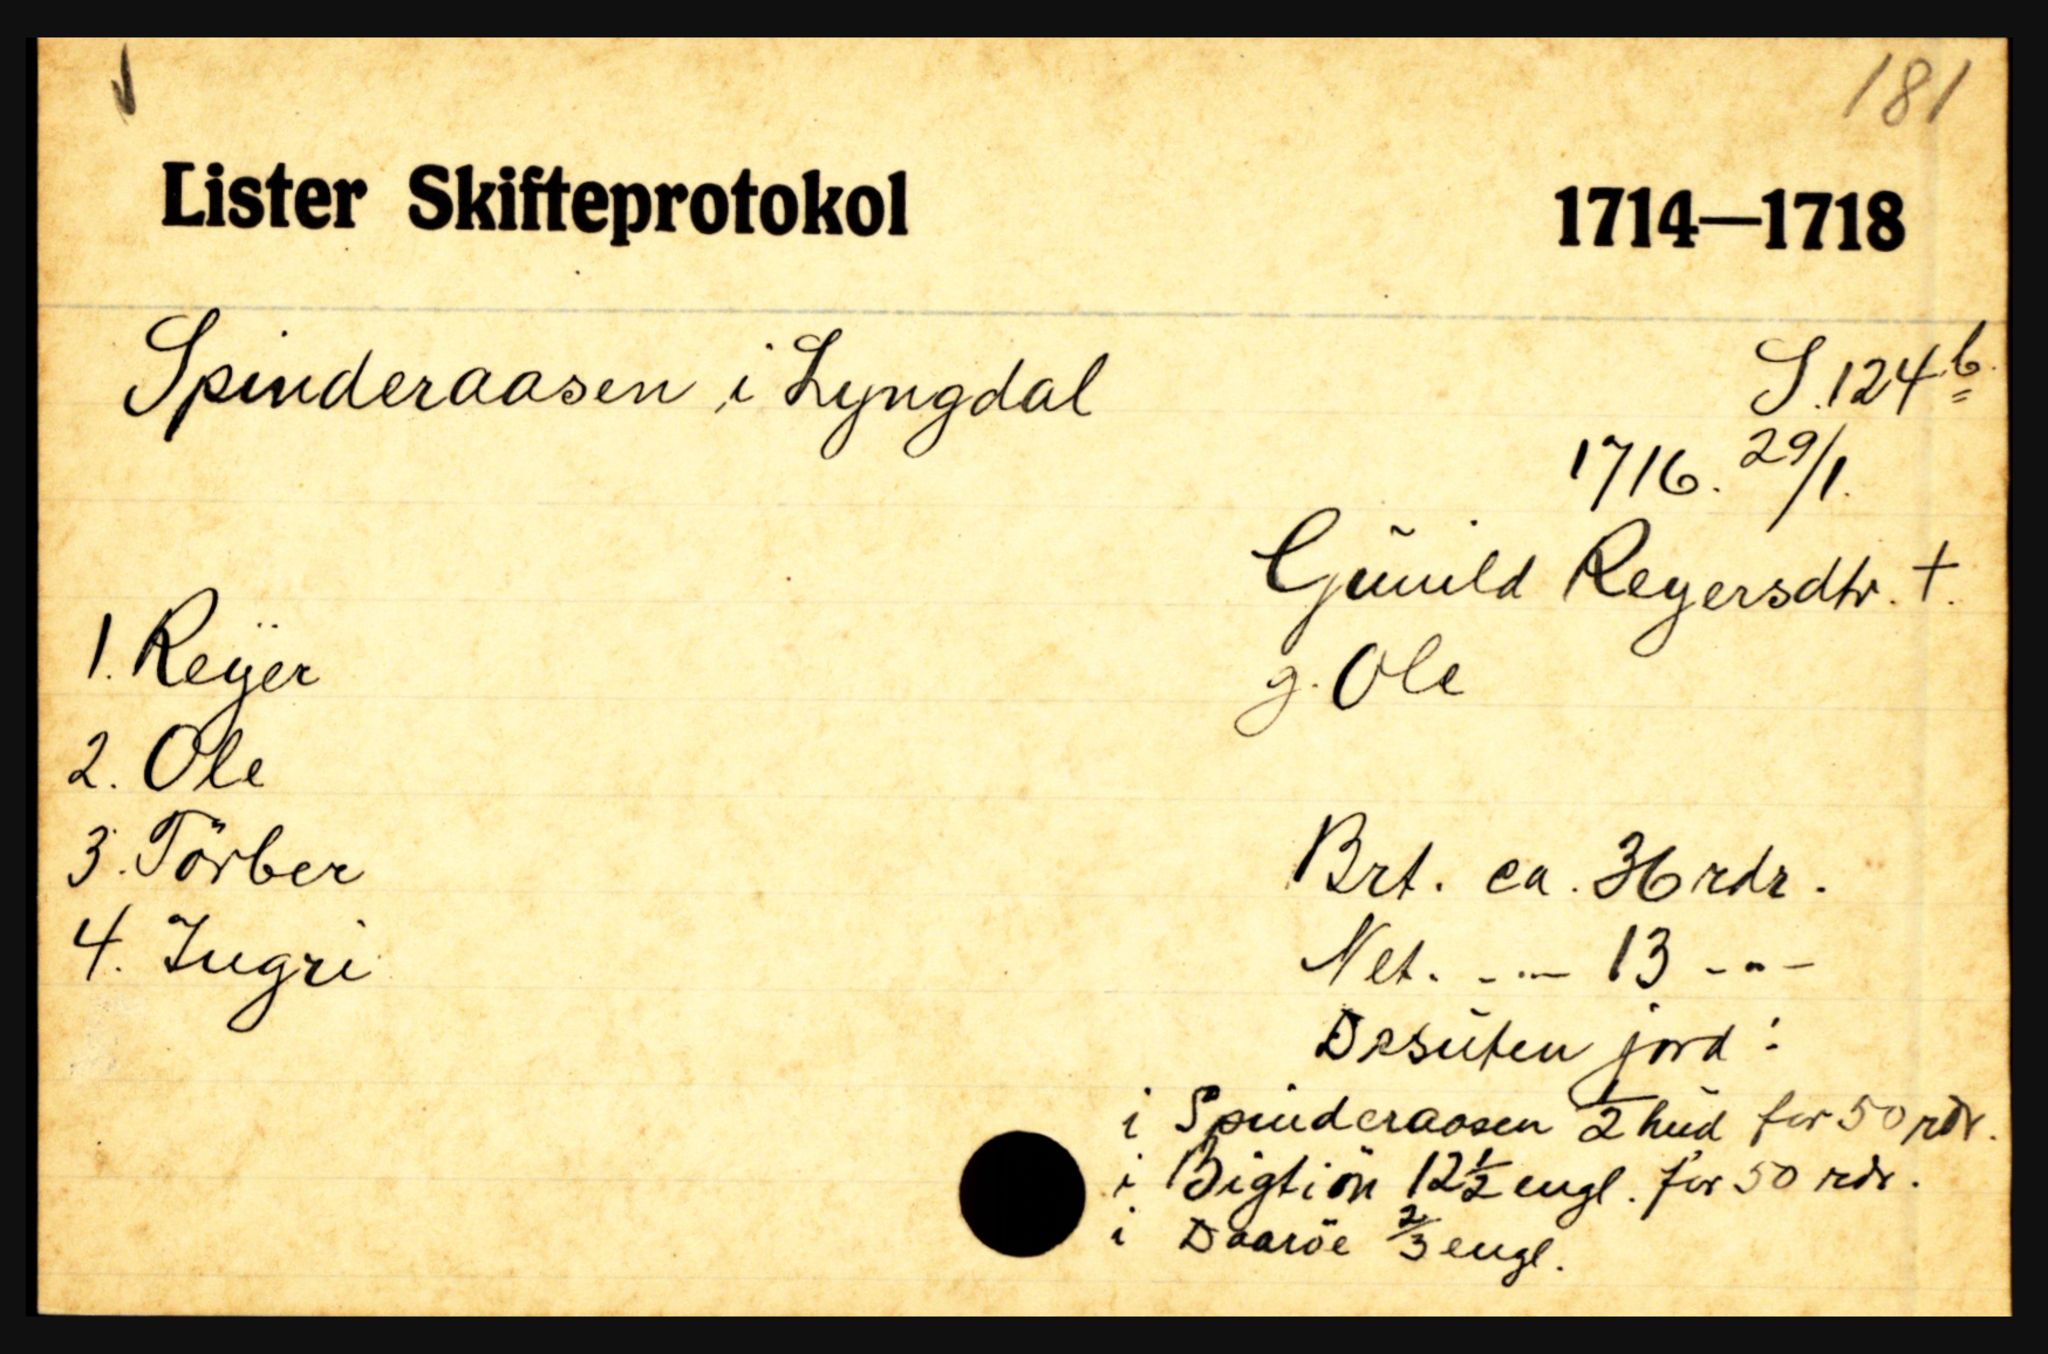 181
Lister Skifteprotokol 1714—1718
Spinderaasen i Lyngdal S. 124 b.
1716. 29/1.
Gunild Reyersdtr. +.
1. Reÿer
g. Ole
2. Ole
3. Törber
Brt. ca. 36 rdr.
4. Ingri
Net. - - - 13 - - -
Desuten jord :
i Spinderaasen 1/2 hud for 50 rdr.
i Bigtiön 12 1/2 engl. for 50 rdr.
i Daaröe 2/3 engl.